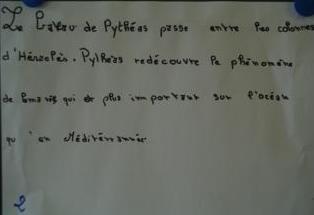 Le Bateau de Pythéas passe entre les colonnes
d'Héraclès. Pythéas redécouvre le phénomène
de la marée qui est plus important sur l'océan
qu'en Méditerrannée
2